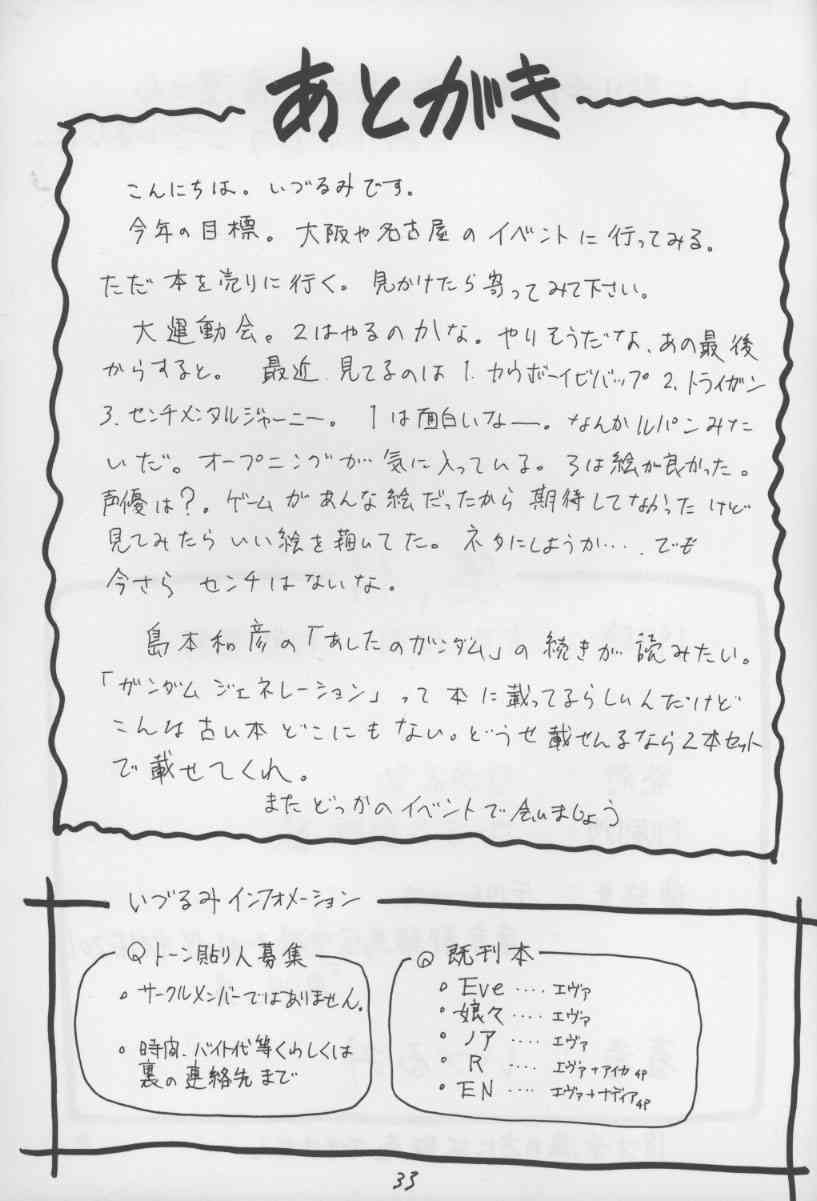 あとがき
こんにちは。いづるみです。
今年の目標。大阪や名古屋のイベントに行ってみる。
ただ本を売りに行く。見かけたら寄ってみて下さい。
大運動会。2はやるのかな。やりそうだな、あの最後
からすると。最近、見てるのは 1.カウボーイビバップ 2.トライガン
3.センチメンタルジャーニー。1は面白いなー。なんかルパンみた
いだ。オープニングが気に入っている。3は絵が良かった。
声優は?。ゲームがあんな絵だったから期待してなかったけど
見てみたらいい絵を描いてた。ネタにしようか‥‥。でも
今さらセンチはないな。
島本和彦の「あしたのガンダム」の続きが読みたい。
「ガンダムジェネレーション」って本に載ってるらしいんだけど
こんな古い本どこにもない。どうせ載せんるなら2本セット
で載せてくれ。
またどっかのイベントで会いましょう
いづるみインフォメーション
Qトーン貼り人募集
◦サークルメンバーではありません。
◦時間、バイト代等くわしくは
裏の連絡先まで
Q既刊本
◦Eve‥‥エヴァ
◦娘々‥‥エヴァ
◦ノア‥‥エヴァ
◦R‥‥エヴァ+アイカ4P
◦EN‥‥エヴァ+ナディア4P
33